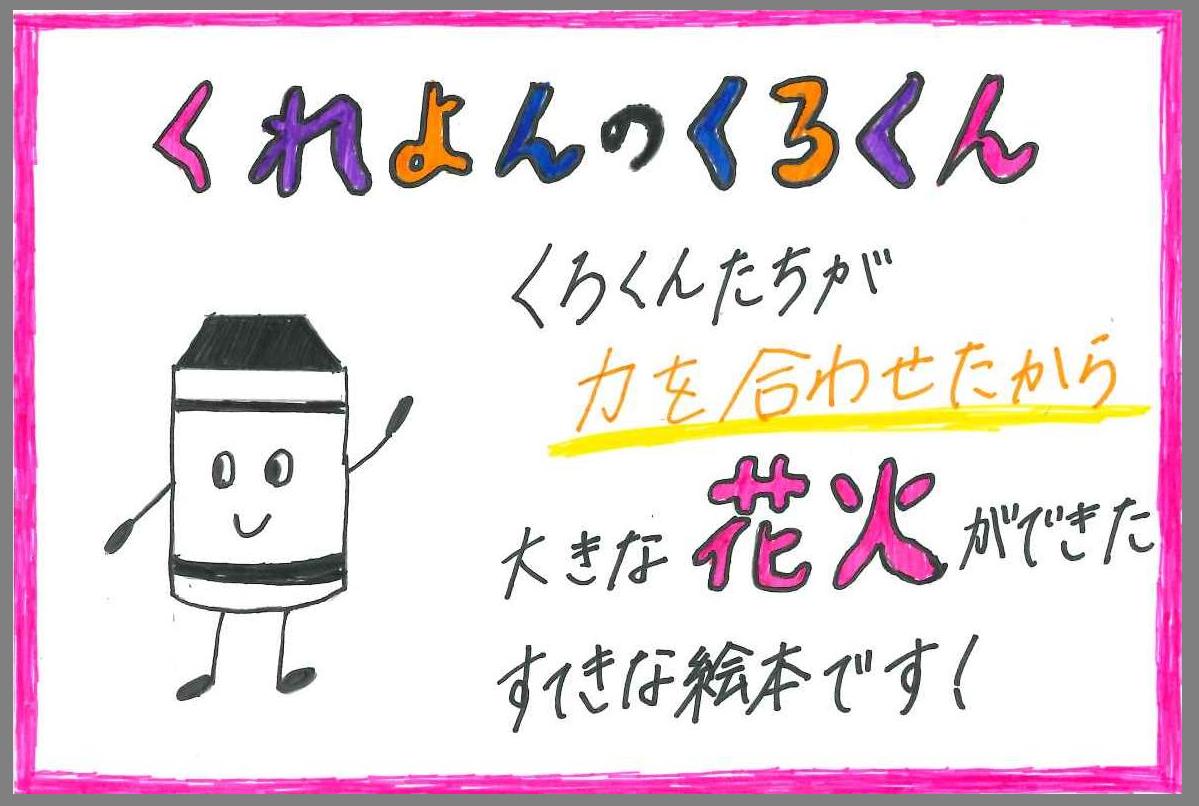 くれよんのくろくん
くろくんたちが
力を合わせたから
大きな花火ができた
すてきな絵本です!